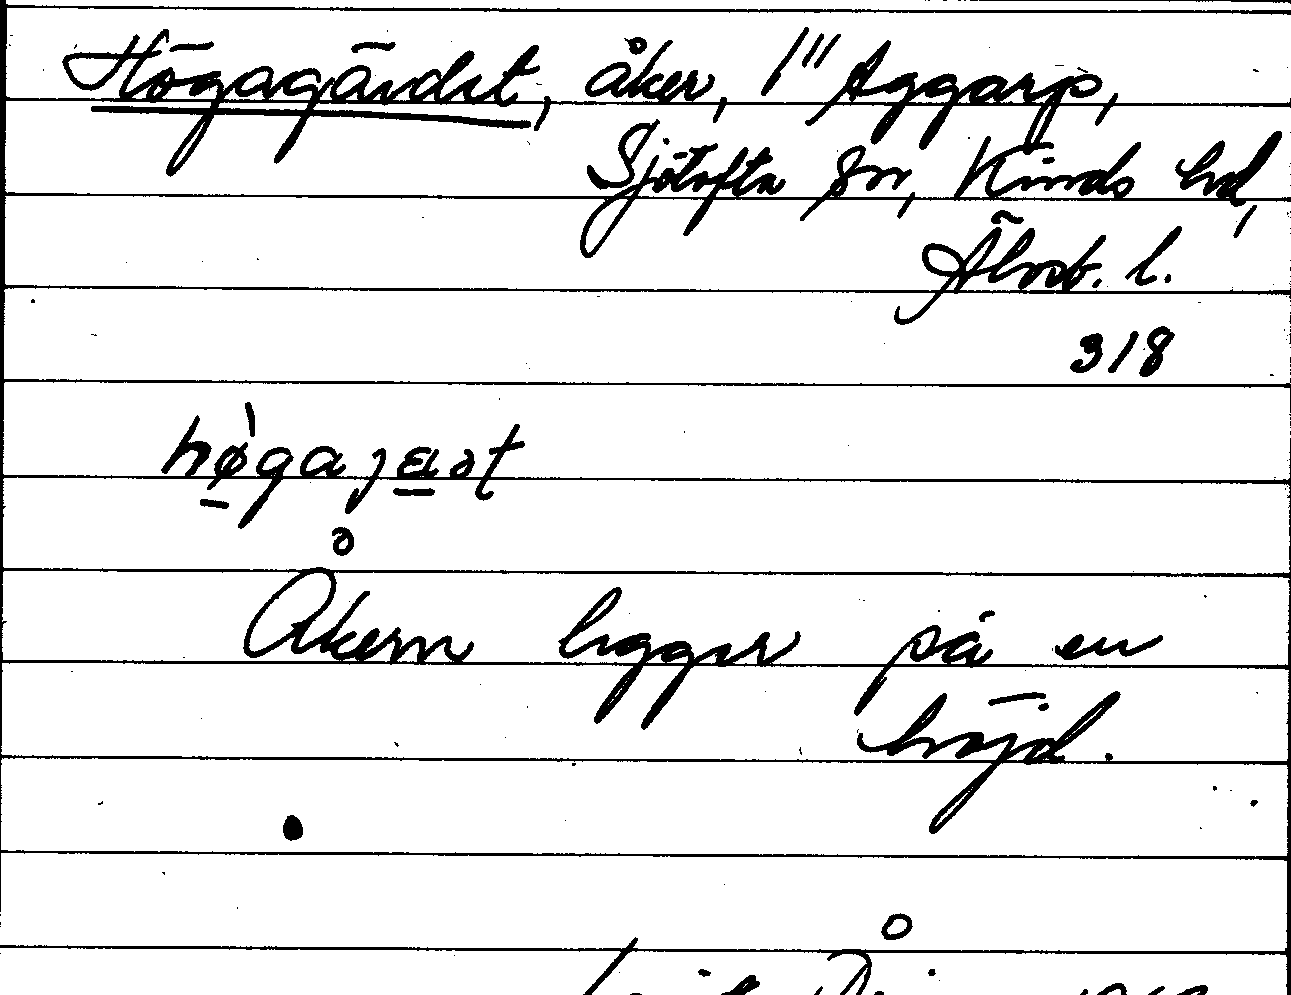 Högagärdet, åker, 1''' Aggarp,
Sjötofta sn, Kinds hd,
Älvsb. l.
318
hø̀gajæət
Åkern ligger på en
höjd.